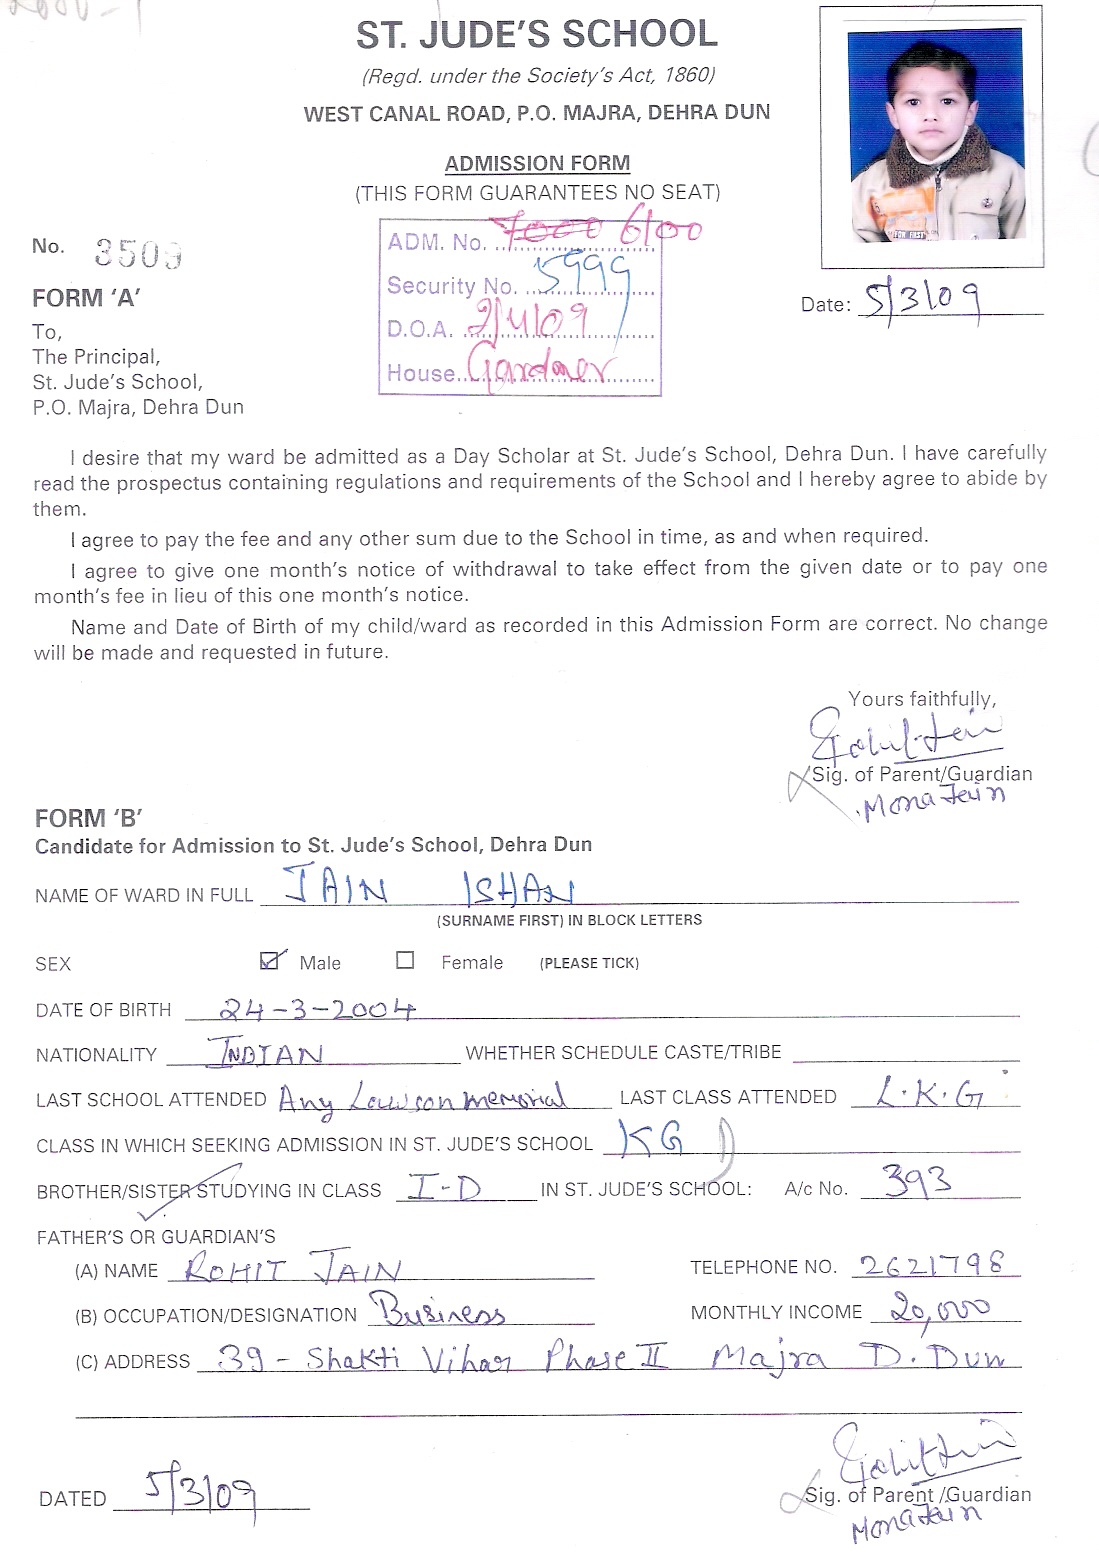 ST. JUDE'S SCHOOL
(Regd. under the Society's Act, 1860)
WEST CANAL ROAD, P.O. MAJRA, DEHRA DUN
ADMISSION FORM
(THIS FORM GUARANTEES NO SEAT)
No. 3509
ADM. No. 7000 6100
Security No. 5999
D.O.A. 2/4/09
House Gardner
Date: 5/3/09
FORM 'A'
To,
The Principal,
St. Jude's School,
P.O. Majra, Dehra Dun
I desire that my ward be admitted as a Day Scholar at St. Jude's School, Dehra Dun. I have carefully
read the prospectus containing regulations and requirements of the School and I hereby agree to abide by
them.
I agree to pay the fee and any other sum due to the School in time, as and when required.
I agree to give one month's notice of withdrawal to take effect from the given date or to pay one
month's fee in lieu of this one month's notice.
Name and Date of Birth of my child/ward as recorded in this Admission Form are correct. No change
will be made and requested in future.
Yours faithfully,
Rohit Jain
Sig. of Parent/Guardian
Mona Jain
FORM 'B'
Candidate for Admission to St. Jude's School, Dehra Dun
NAME OF WARD IN FULL JAIN ISHAN
(SURNAME FIRST) IN BLOCK LETTERS
SEX Male Female (PLEASE TICK)
DATE OF BIRTH 24-3-2004
NATIONALITY INDIAN WHETHER SCHEDULE CASTE/TRIBE
LAST SCHOOL ATTENDED Any Lawson memorial LAST CLASS ATTENDED L.K.G
CLASS IN WHICH SEEKING ADMISSION IN ST. JUDE'S SCHOOL KG
BROTHER/SISTER STUDYING IN CLASS I-D IN ST. JUDE'S SCHOOL: A/c No. 393
FATHER'S OR GUARDIAN'S
(A) NAME ROHIT JAIN TELEPHONE NO. 2621798
(B) OCCUPATION/DESIGNATION Business MONTHLY INCOME 20,000
(C) ADDRESS 39 - Shakti Vihar Phase II Majra D. Dun
Rohit Jain
DATED 5/3/09 Sig. of Parent /Guardian
Mona Jain